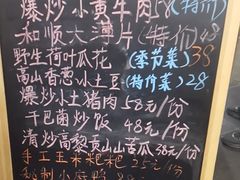 爆炒小黄牛肉58(特价)
和顺大薄片(特价)48
野生荷叶瓜花(季节菜)38
高山香芭小土豆(特价菜)28
爆炒小土猪肉58元/份
干巴卤炒饭48元/份
清炒高黎贡山山苦瓜38元/份
手工玉米粑粑25元/份
秘制小麻鸭